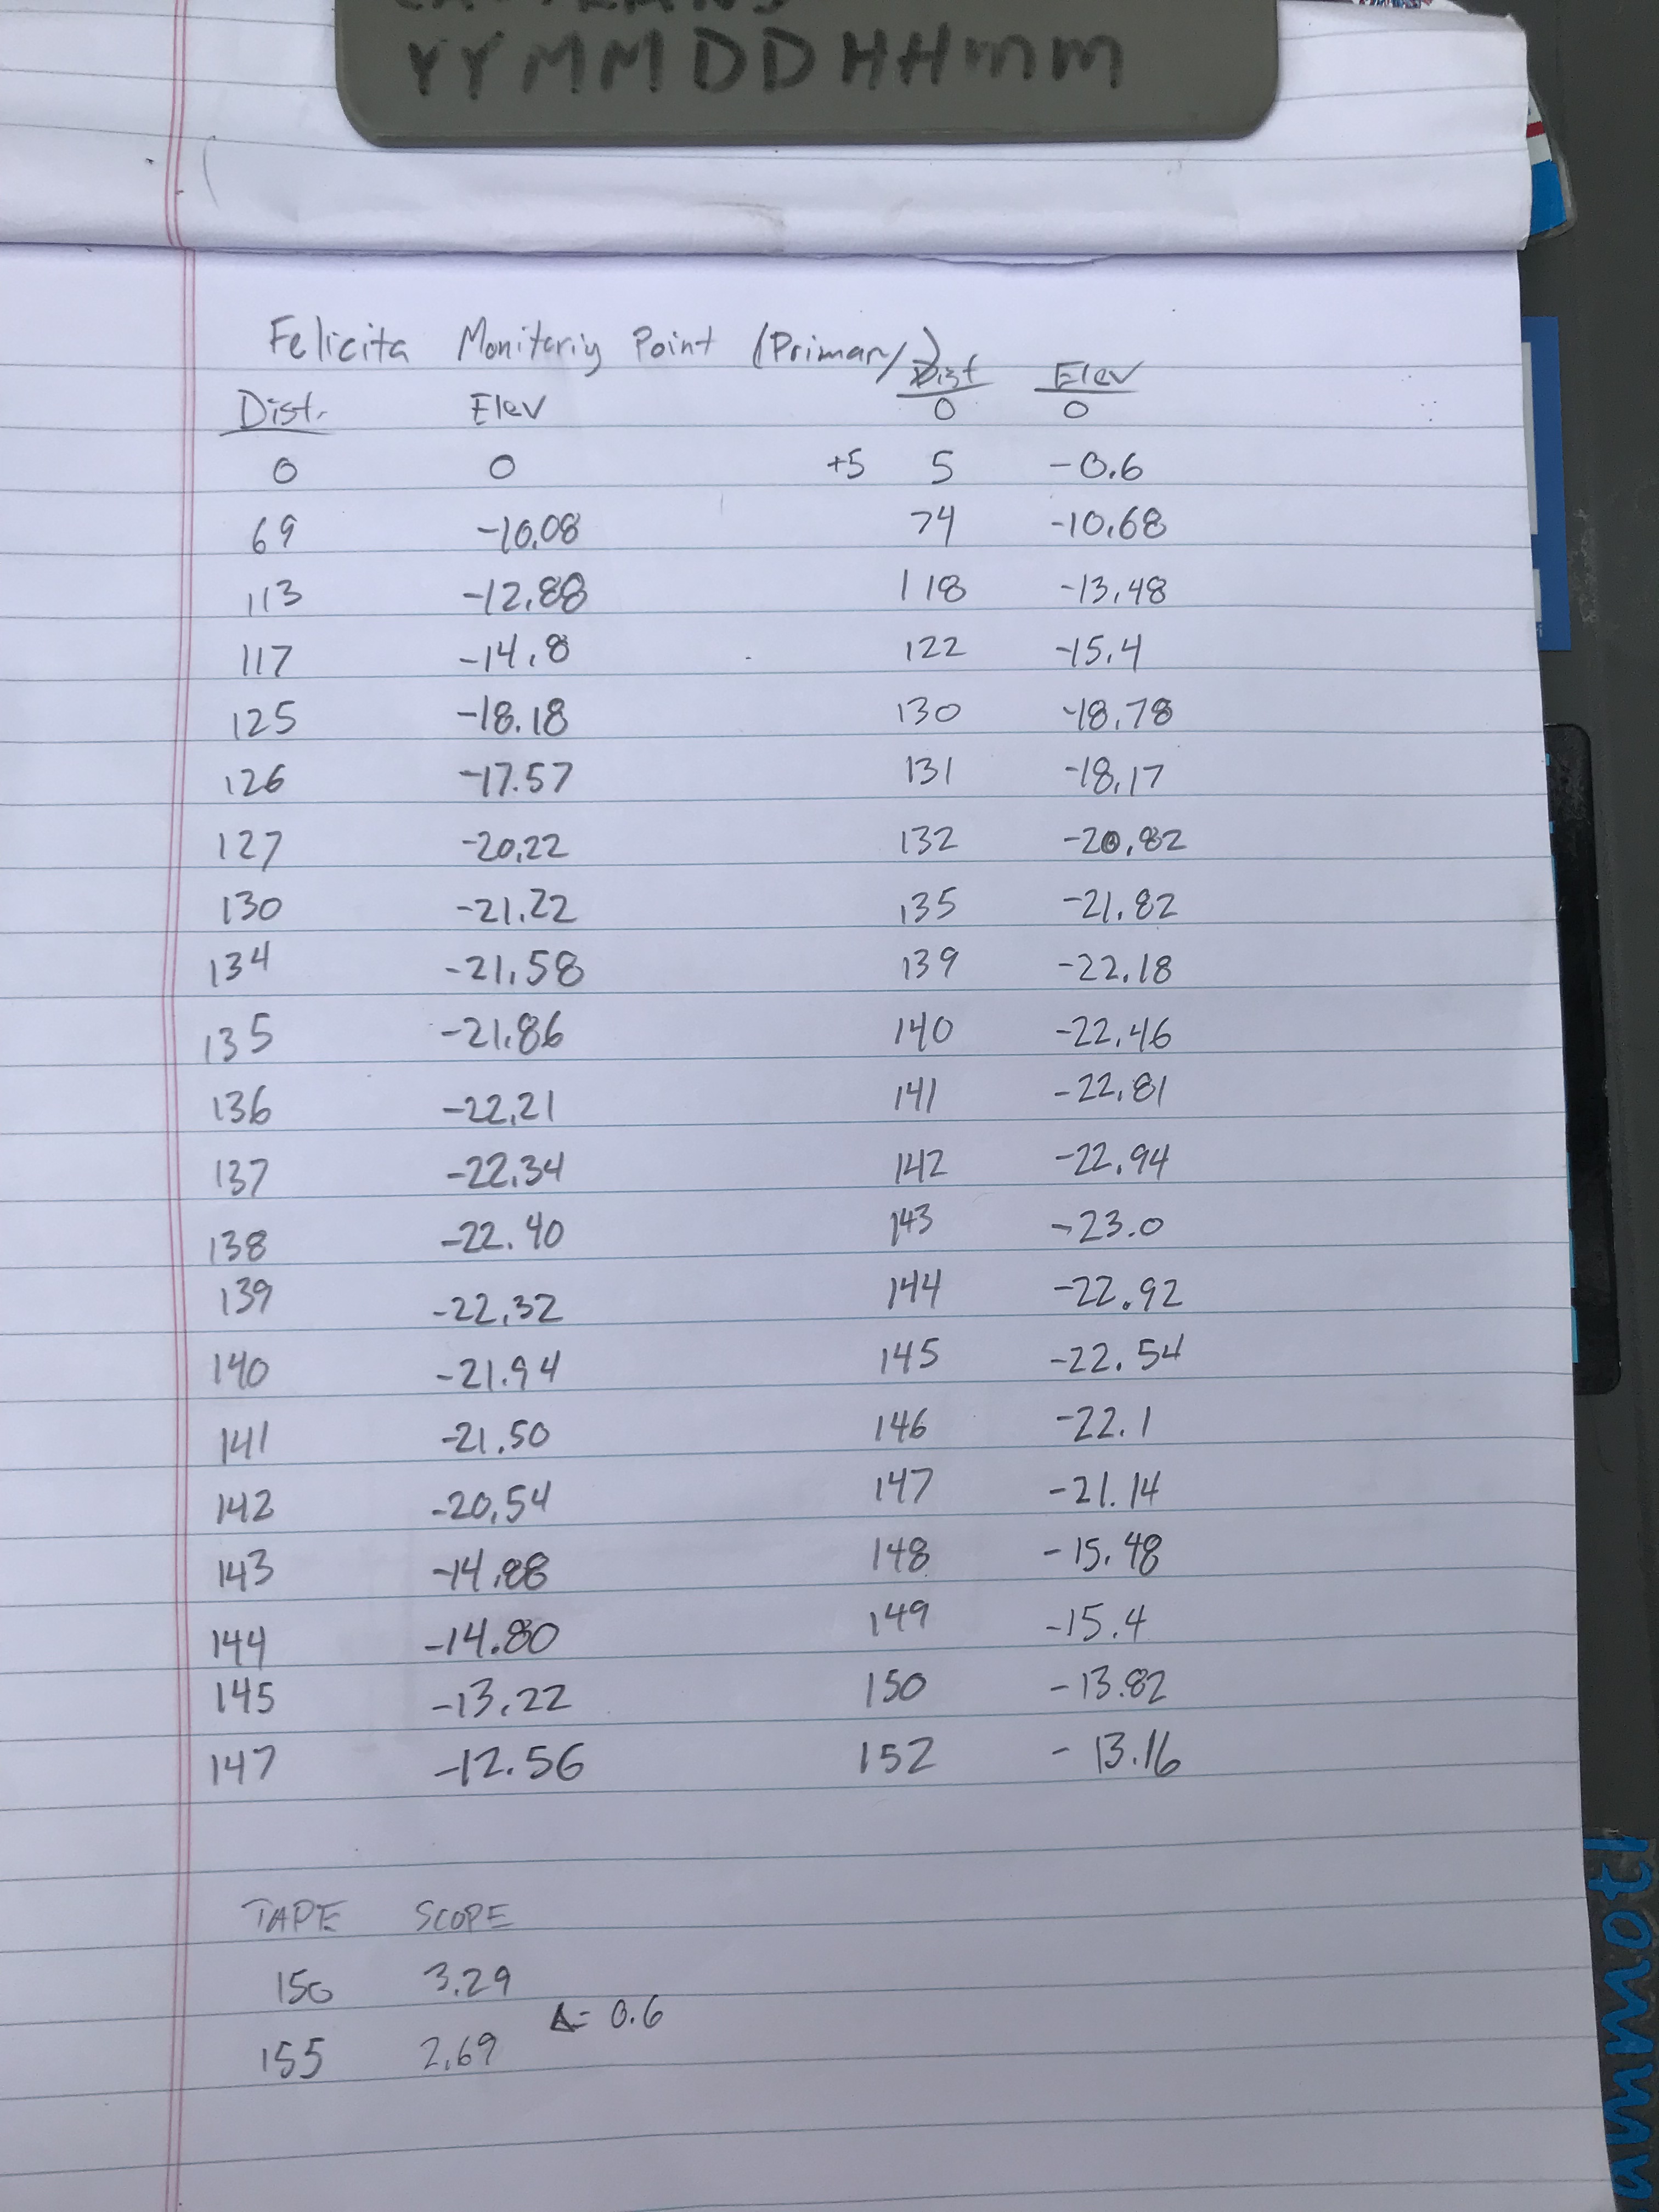 YYMMDDHHmm
Felicita Monitoring Point (Primary)
Dist. Elev Dist Elev
0 0
0 0 +5 5 -0.6
69 -10.08 74 -10.68
113 -12.88 118 -13.48
117 -14.8 122 -15.4
125 -18.18 130 -18.78
126 -17.57 131 -18.17
127 -20.22 132 -20.82
130 -21.22 135 -21.82
134 -21.58 139 -22.18
135 -21.86 140 -22.46
136 -22.21 141 -22.81
137 -22.34 142 -22.94
138 -22.40 143 -23.0
139 -22.32 144 -22.92
140 -21.94 145 -22.54
141 -21.50 146 -22.1
142 -20.54 147 -21.14
143 -14.88 148 -15.48
144 -14.80 149 -15.4
145 -13.22 150 -13.82
147 -12.56 152 -13.16
TAPE SCOPE
150 3.29
Δ= 0.6
155 2.69